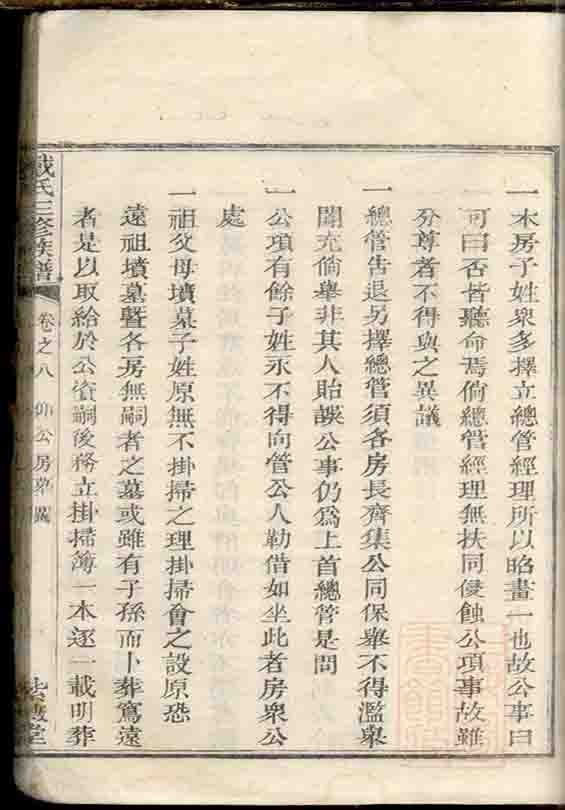 一本房子姓衆多擇立總管經理所以昭畫一也故公事曰
可曰否皆聽命焉倘總管經理無扶同侵蝕公項事故雖
分尊者不得與之異議
一總管告退另擇總管須各房長齊集公同保舉不得濫泉
聞充倘舉非其人貽誤公事仍爲上首總管是問
一公項有餘子姓永不得向管公人勒借如坐此者房衆公
處
一祖父母墳墓子姓原無不掛掃之理掛掃會之設原恐
遠祖墳墓暨各房無嗣者之墓或雖有子孫而卜葬寫遠
者是以取給於公資嗣後務立掛掃簿一本逐一載明葬
氏三修族譜
卷之八
公房
堂